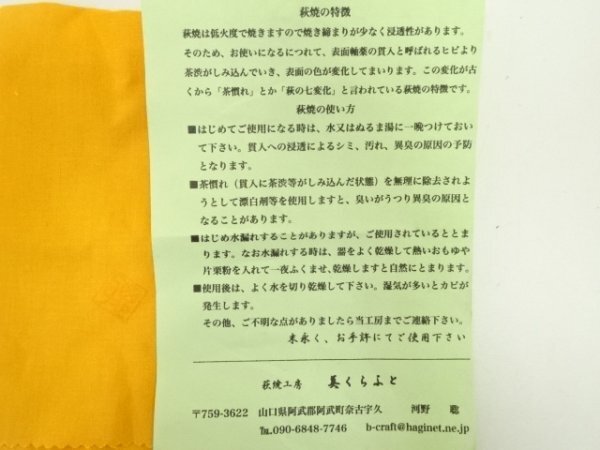 萩焼の特徴
萩焼は低火度で焼きますので焼き締まりが少なく浸透性があります。
そのため、お使いになるにつれて、表面釉薬の貫入と呼ばれるヒビより
茶渋がしみ込んでいき、表面の色が変化してまいります。この変化が古
くから「茶慣れ」とか「萩の七変化」と言われている萩焼の特徴です。
萩焼の使い方
■はじめてご使用になる時は、水又はぬるま湯に一晩つけておい
て下さい。貫入への浸透によるシミ、汚れ、異臭の原因の予防
となります。
■茶慣れ（貫入に茶渋等がしみ込んだ状態）を無理に除去されよ
うとして漂白剤等を使用しますと、臭いがうつり異臭の原因と
なることがあります。
■はじめ水漏れすることがありますが、ご使用されているととま
ります。なお水漏れする時は、器をよく乾燥して熱いおもゆや
片栗粉を入れて一夜ふくませ、乾燥しますと自然にとまります。
■使用後は、よく水を切り乾燥して下さい。湿気が多いとカビが
発生します。
その他、ご不明な点がありましたら当工房までご連絡下さい。
末永く、お手許にてご使用下さい
萩焼工房 美くらふと
〒759-3622 山口県阿武郡阿武町奈古宇久 河野 聡
℡.090-6848-7746 b-craft@haginet.ne.jp